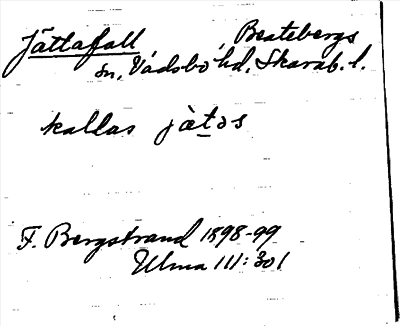 Jättafall, Beatebergs
sn, Vadsbo hd, Skarab. l.
kallas jàtɔs
F. Bergstrand 1898-99
Ulma 111:301